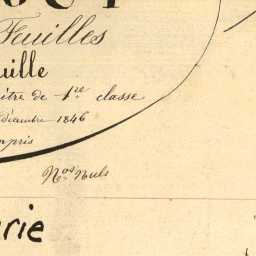 Feuilles
uille
ître de 1re classe
décembre 1846
mpris
Nos Nuls
rie